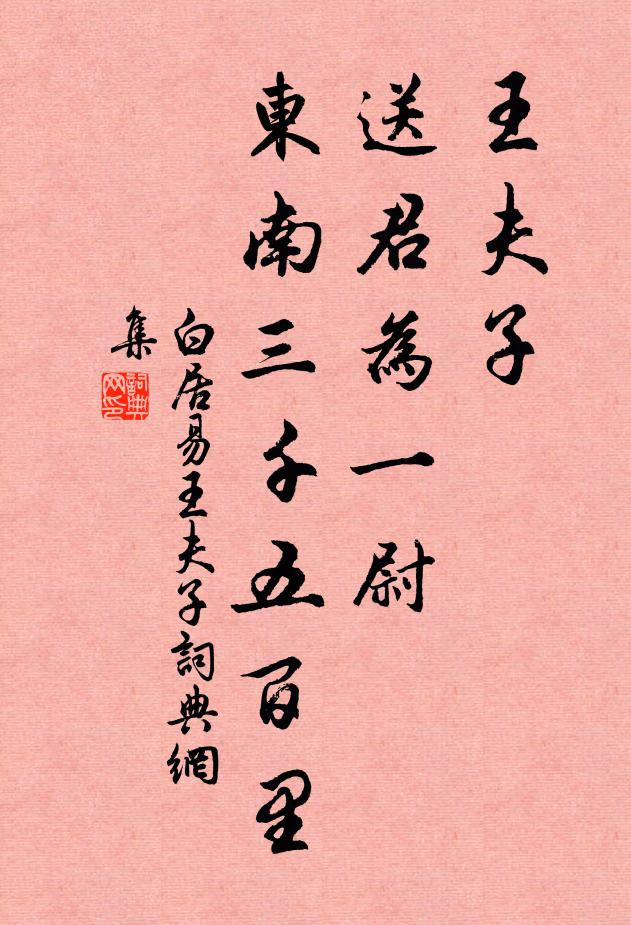 王夫子
送君為一尉
東南三千五百里
白居易王夫子詞典網
集
詞典
网印